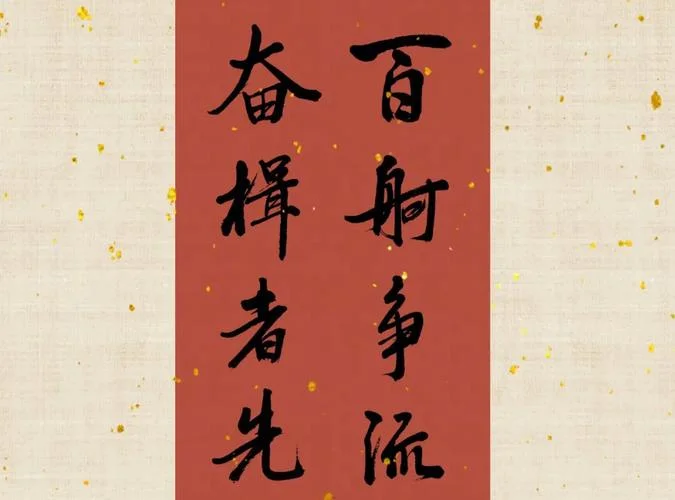 百舸争流
奋楫者先